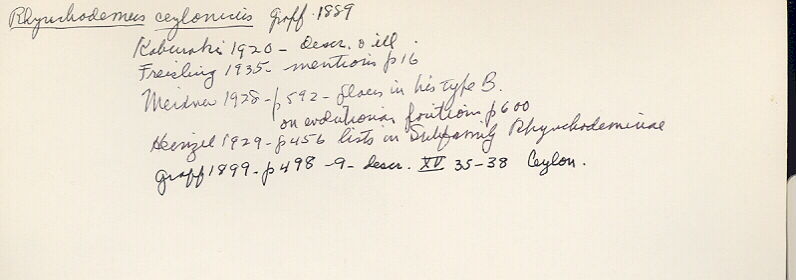 Rhynchodemus ceylonicus Graff. 1889
Kaburaki 1920 - descr. & ill.
Freisling 1935 - mentions p 16
Meixner 1928 - p 592 - places in his type B.
on evolutionary position p 600
Heinzel 1929 - p 456 lists in Subfamily Rhynchodeminae
Graff 1899 - p 498 - 9 - descr. XV 35-38 Ceylon.